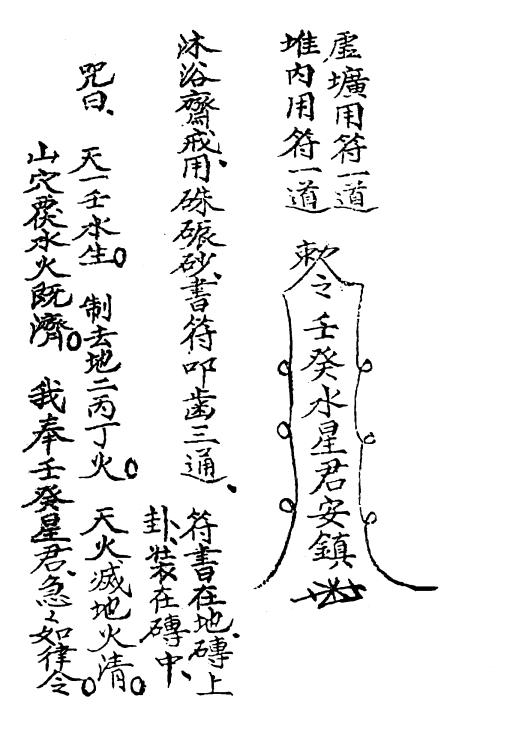 虛壙用符一道
堆內用符一道
敕令壬癸水星君安鎮
沐浴齋戒、用硃硍砂、書符叩齒三通、
符書在地磚上
卦、裝在磚中、
咒曰、
天一壬水生。制去地二丙丁火。天火滅地火清。
山穴覆水火既濟。我奉壬癸星君、急々如律令。